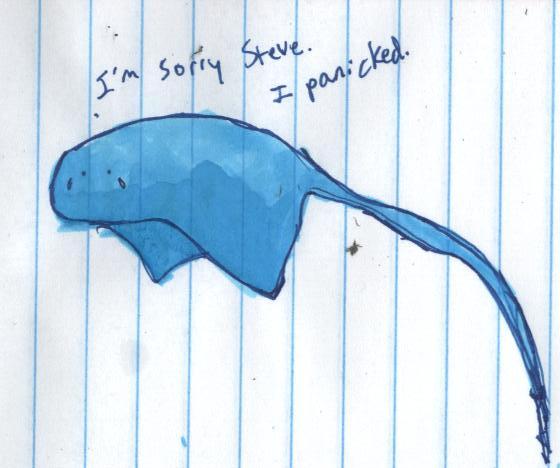 I'm sorry Steve.
I panicked.